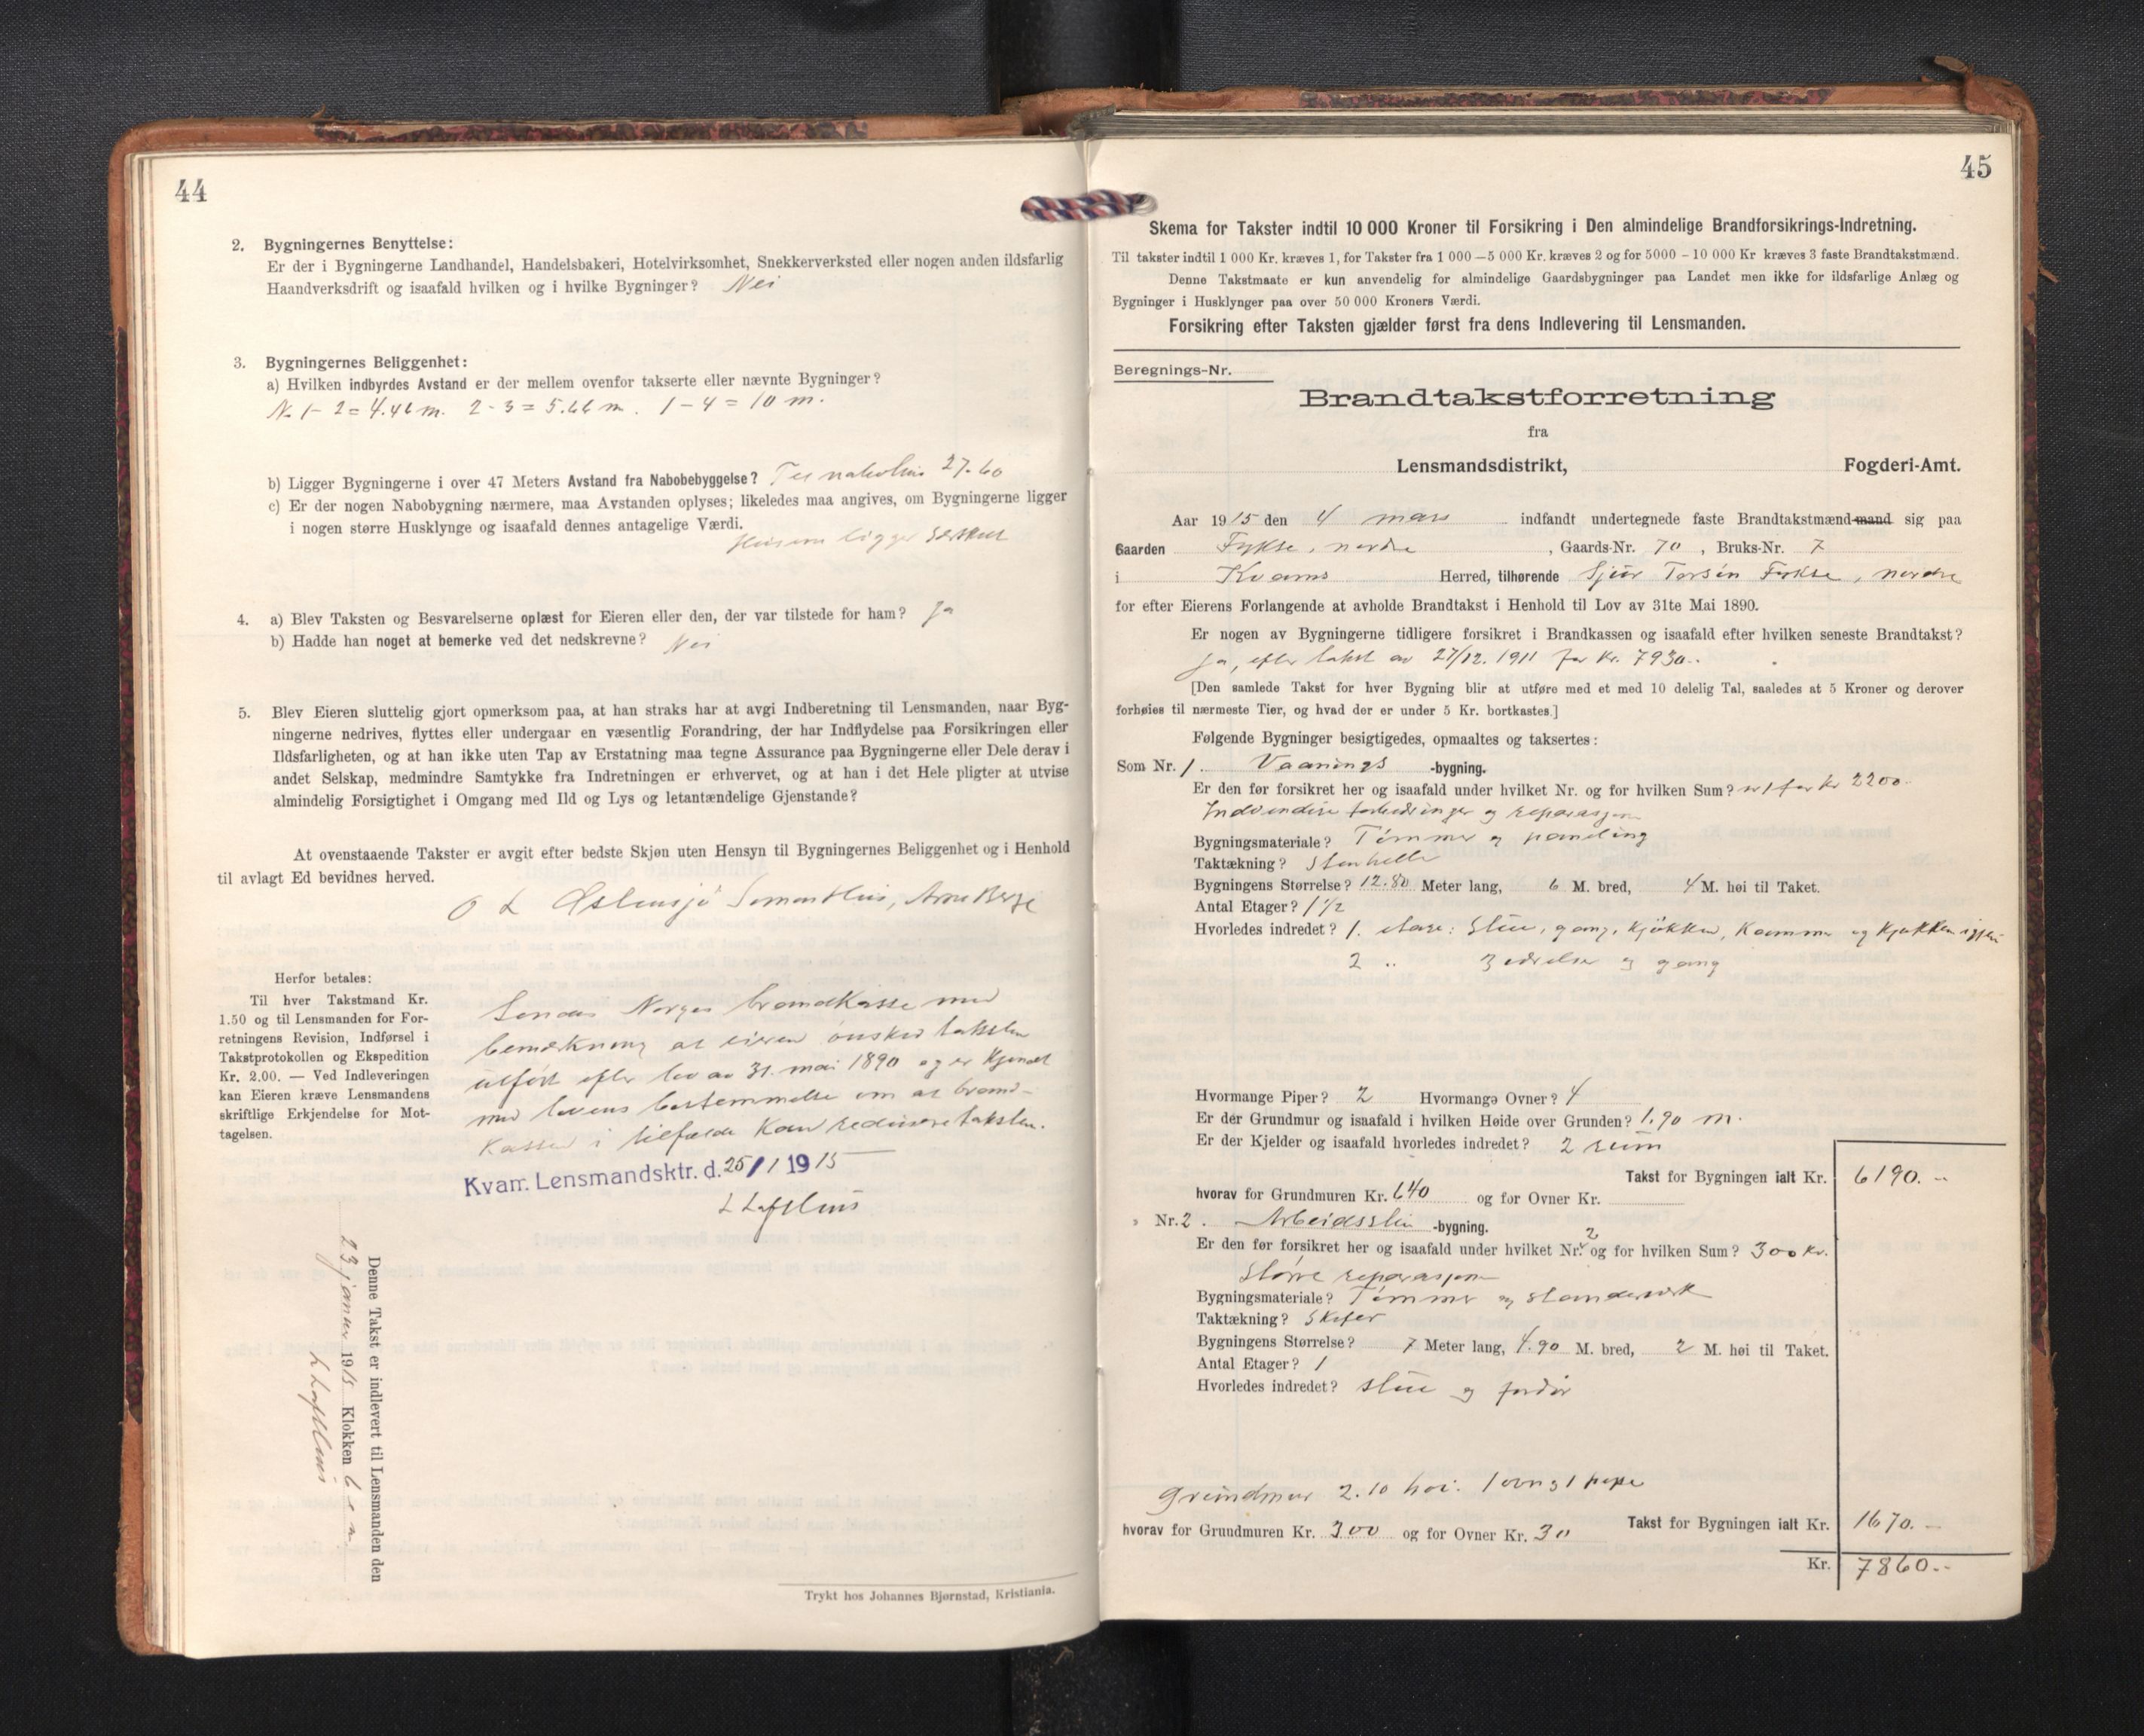 44
2. Bygningernes Benyttelse:
Er der i Bygningerne Landhandel, Handelsbakeri, Hotelvirksomhet, Snekkerverksted eller nogen anden ildsfarlig
Haandverksdrift og isaafald hvilken og i hvilke Bygninger? Nei
3. Bygningernes Beliggenhet:
a) Hvilken indbyrdes Avstand er der mellem ovenfor takserte eller nævnte Bygninger?
No 1 - 2 = 4.46 m. 2 - 3 = 5.66 m. 1 - 4 = 10 m.
b) Ligger Bygningerne i over 47 Meters Avstand fra Nabobebyggelse? Til nabohus 27.60
c) Er der nogen Nabobygning nærmere, maa Avstanden oplyses; likeledes maa angives, om Bygningerne ligger
i nogen større Husklynge og isaafald dennes antagelige Værdi.
Husene ligger særskilt
4. a) Blev Taksten og Besvarelserne oplæst for Eieren eller den, der var tilstede for ham? Ja
b) Hadde han noget at bemerke ved det nedskrevne? Nei
5. Blev Eieren sluttelig gjort opmerksom paa, at han straks har at avgi Indberetning til Lensmanden, naar Byg-
ningerne nedrives, flyttes eller undergaar en væsentlig Forandring, der har Indflydelse paa Forsikringen eller
Ildsfarligheten, og at han ikke uten Tap av Erstatning maa tegne Assurance paa Bygningerne eller Dele derav i
andet Selskap, medmindre Samtykke fra Indretningen er erhvervet, og at han i det Hele pligter at utvise
almindelig Forsigtighet i Omgang med Ild og Lys og letantændelige Gjenstande?
At ovenstaaende Takster er avgit efter bedste Skjøn uten Hensyn til Bygningernes Beliggenhet og i Henhold
til avlagt Ed bevidnes herved.
O L Østensjö Simon Hus, Arne Berge
Herfor betales:
Til hver Takstmand Kr.
1.50 og til Lensmanden for For-
retningens Revision, Indførsel i
Takstprotokollen og Ekspedition
Kr. 2.00. — Ved Indleveringen
kan Eieren kræve Lensmandens
skriftlige Erkjendelse for Mot-
tagelsen.
Sendes Norges brandkasse med
bemerkning at eieren ønsker taksten
utført efter lov av 31. mai 1890 og er kjendt
med lovens bestemmelse om at brand-
kassen i tilfælde kan redusere taksten.
Kvam Lensmandsktr. d. 25/1 1915
L Lofthus
Denne Takst er indlevert til Lensmanden den
23 januar 1915 Klokken 6 e m
L Lofthus
Trykt hos Johannes Bjørnstad, Kristiania.
45
Skema for Takster indtil 10 000 Kroner til Forsikring i Den almindelige Brandforsikrings-Indretning.
Til takster indtil 1 000 Kr. kræves 1, for Takster fra 1 000 — 5 000 Kr. kræves 2 og for 5000 - 10 000 Kr kræves 3 faste Brandtakstmænd.
Denne Takstmaate er kun anvendelig for almindelige Gaardsbygninger paa Landet men ikke for ildsfarlige Anlæg og
Bygninger i Husklynger paa over 50 000 Kroners Værdi.
Forsikring efter Taksten gjælder først fra dens Indlevering til Lensmanden.
Beregnings-Nr.
Brandtakstforretning
fra
Lensmandsdistrikt, Fogderi-Amt.
Aar 1915 den 4 mars indfandt undertegnede faste Brandtakstmænd-mand sig paa
Gaarden Fykse, nordre, Gaards-Nr. 70, Bruks-Nr. 7
i Kvams Herred, tilhørende Sjur Torsen Fykse, nordre
for efter Eierens Forlangende at avholde Brandtakst i Henhold til Lov av 31te Mai 1890.
Er nogen av Bygningerne tidligere forsikret i Brandkassen og isaafald efter hvilken seneste Brandtakst?
Ja, efter takst av 27/12. 1911 for Kr. 7930..
[Den samlede Takst for hver Bygning blir at utføre med et med 10 delelig Tal, saaledes at 5 Kroner og derover
forhøies til nærmeste Tier, og hvad der er under 5 Kr. bortkastes.]
Følgende Bygninger besigtigedes, opmaaltes og taksertes:
Som Nr. 1. Vaanings -bygning.
Er den før forsikret her og isaafald under hvilket Nr. og for hvilken Sum? nr 1 for kr 2200.
Indvendige forbedringer og reparasjon
Bygningsmateriale? Tømmer og paneling
Taktækning? Stenhelle
Bygningens Størrelse? 12.80 Meter lang, 6 M. bred, 4 M. høi til Taket.
Antal Etager? 1 1/2
Hvorledes indredet? 1. etage: Stue, gang, kjøkken, Kammer og kjøkken igjen
2 .. 3 værelser og gang
Hvormange Piper? 2 Hvormange Ovner? 4
Er der Grundmur og isaafald i hvilken Høide over Grunden? 1.90 m.
Er der Kjelder og isaafald hvorledes indredet? 2 rum
Takst for Bygningen ialt Kr. 6190.--
hvorav for Grundmuren Kr. 640 og for Ovner Kr.
Nr. 2. Arbeidsstu -bygning.
Er den før forsikret her og isaafald under hvilket Nr. 2 og for hvilken Sum? 300 Kr.
Større reparasjon
Bygningsmateriale? Tømmer og standerverk
Taktækning? Skifer
Bygningens Størrelse? 7 Meter lang, 4.90 M. bred, 2 M. høi til Taket.
Antal Etager? 1
Hvorledes indredet? Stue og fordør
Grundmur 2.10 høi. 1 ovn og 1 pipe
Takst for Bygningen ialt Kr. 1670.--
hvorav for Grundmuren Kr. 300 og for Ovner Kr. 30
Kr. 7860.--